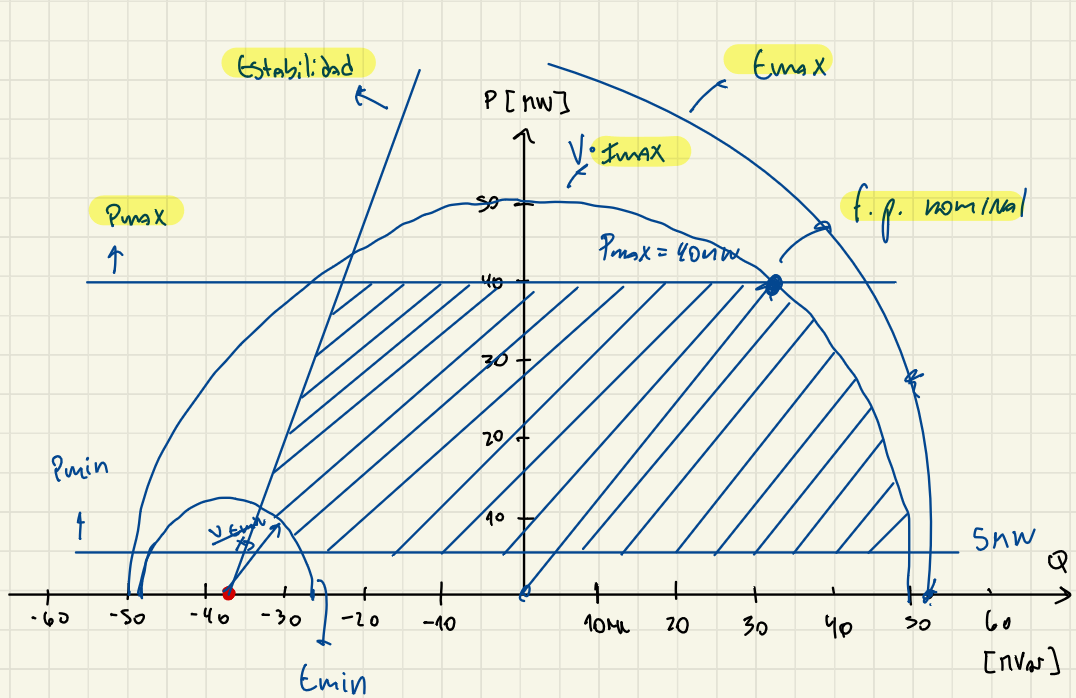 Estabilidad
Emax
P [MW]
V·Imax
Pmax
f.p. nominal
50
Pmax = 40MW
40
30
20
Pmin
10
5MW
Q
-60
-50
-40
-30
-20
-10
10
20
30
40
50
60
[MVar]
Emin